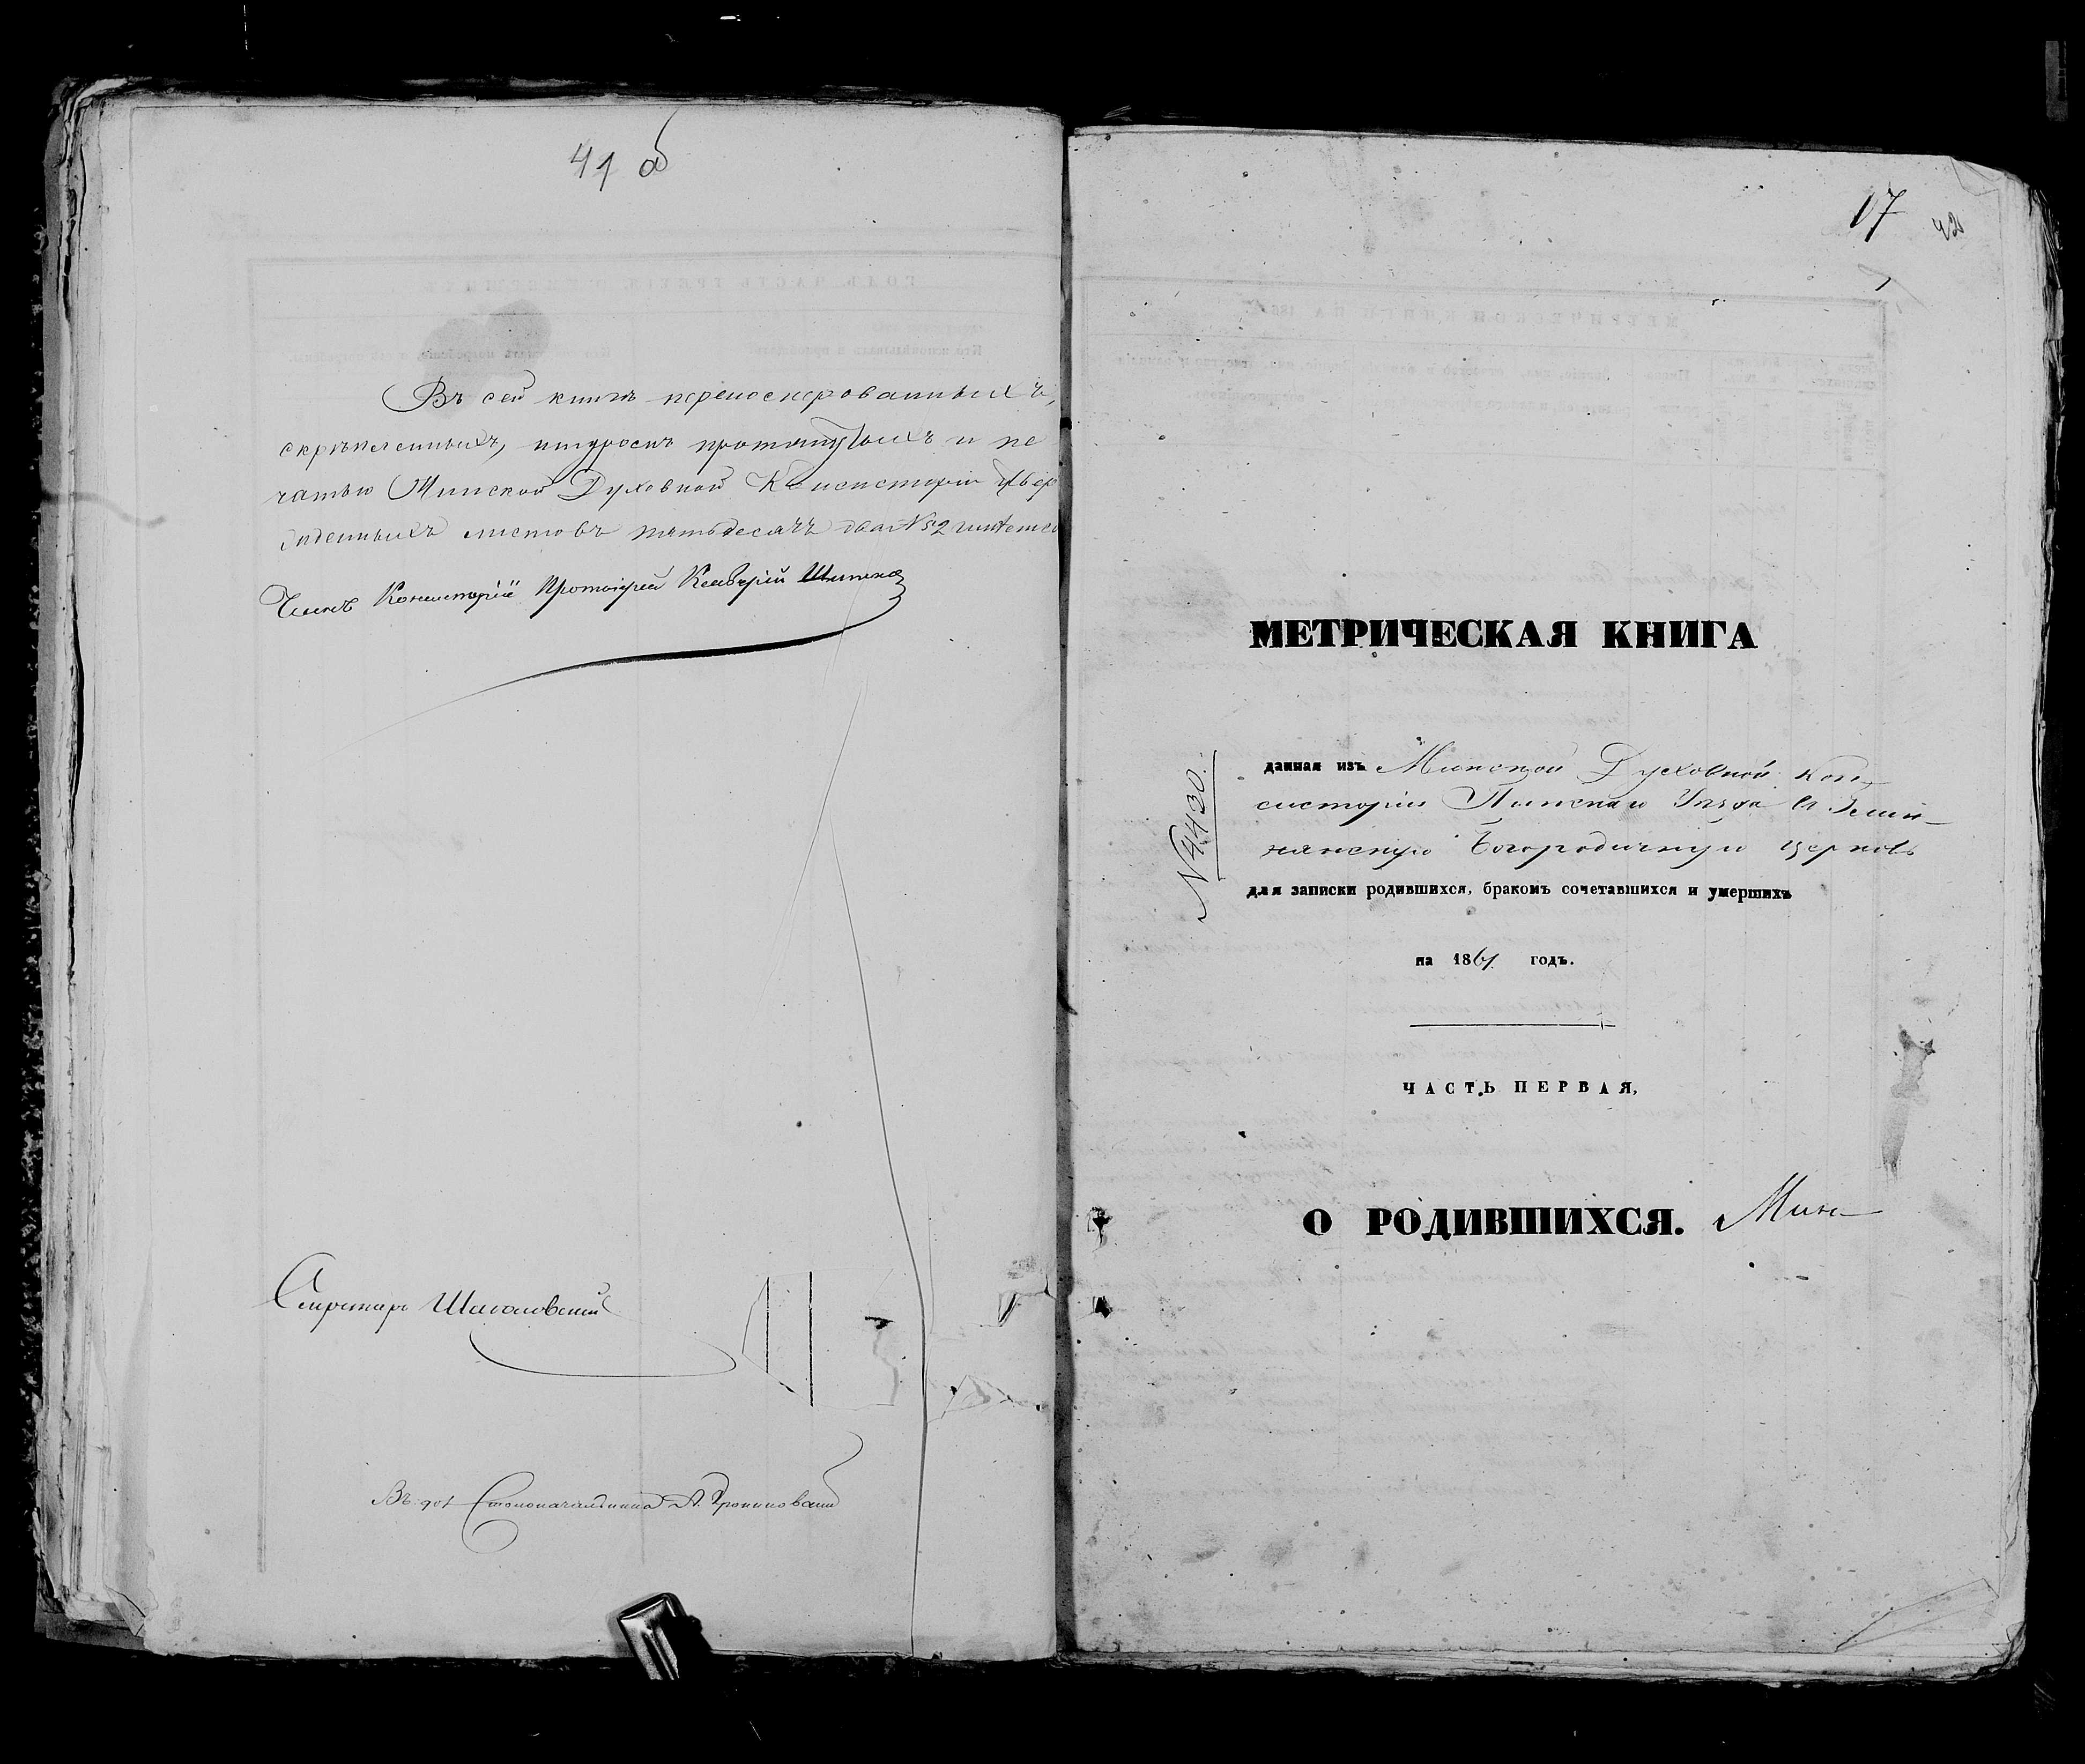 41 об
Въ сей книгѣ перенумерованныхъ,
скрѣпленныхъ, шнуромъ протянутыхъ и пе
чатью Минской Духовной Консисторіи утвер
жденныхъ листовъ пятьдесятъ два №52
Членъ Консисторіи Протоіерей
Секретарь
Въ дол. Столоначальника А.
17
42
МЕТРИЧЕСКАЯ КНИГА
№ 4430.
данная изъ Минской Духовной Кон-
систоріи Пинскаго Уѣзда въ
Богородичную церковь
для записки родившихся, бракомъ сочетавшихся и умершихъ
на 1861 годъ.
ЧАСТЬ ПЕРВАЯ,
О РОДИВШИХСЯ. Мин-